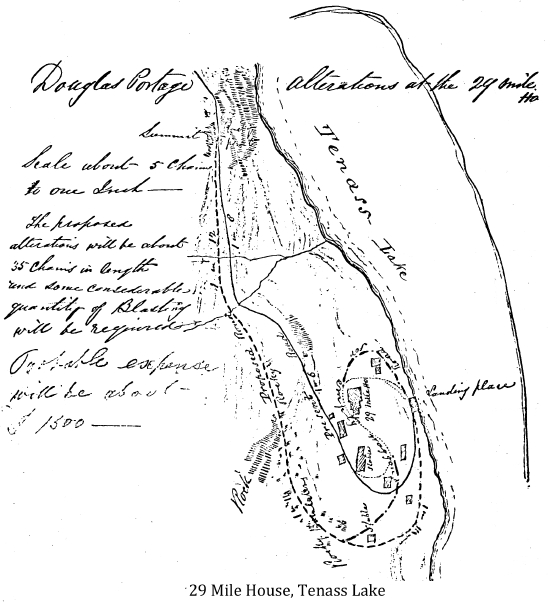 Douglas Portage
Alterations at the 29 mile
Ho
Summit
Scale about 5 Chains
to one Inch
The proposed
alterations will be about
35 Chains in length
and some considerable
quantity of Blasting
will be required
Probable expense
will be about
$ 1500
Tenass Lake
Landing place
Proposed Road
Present Road
29 mile House
Stable
Rock
Rocky
29 Mile House, Tenass Lake